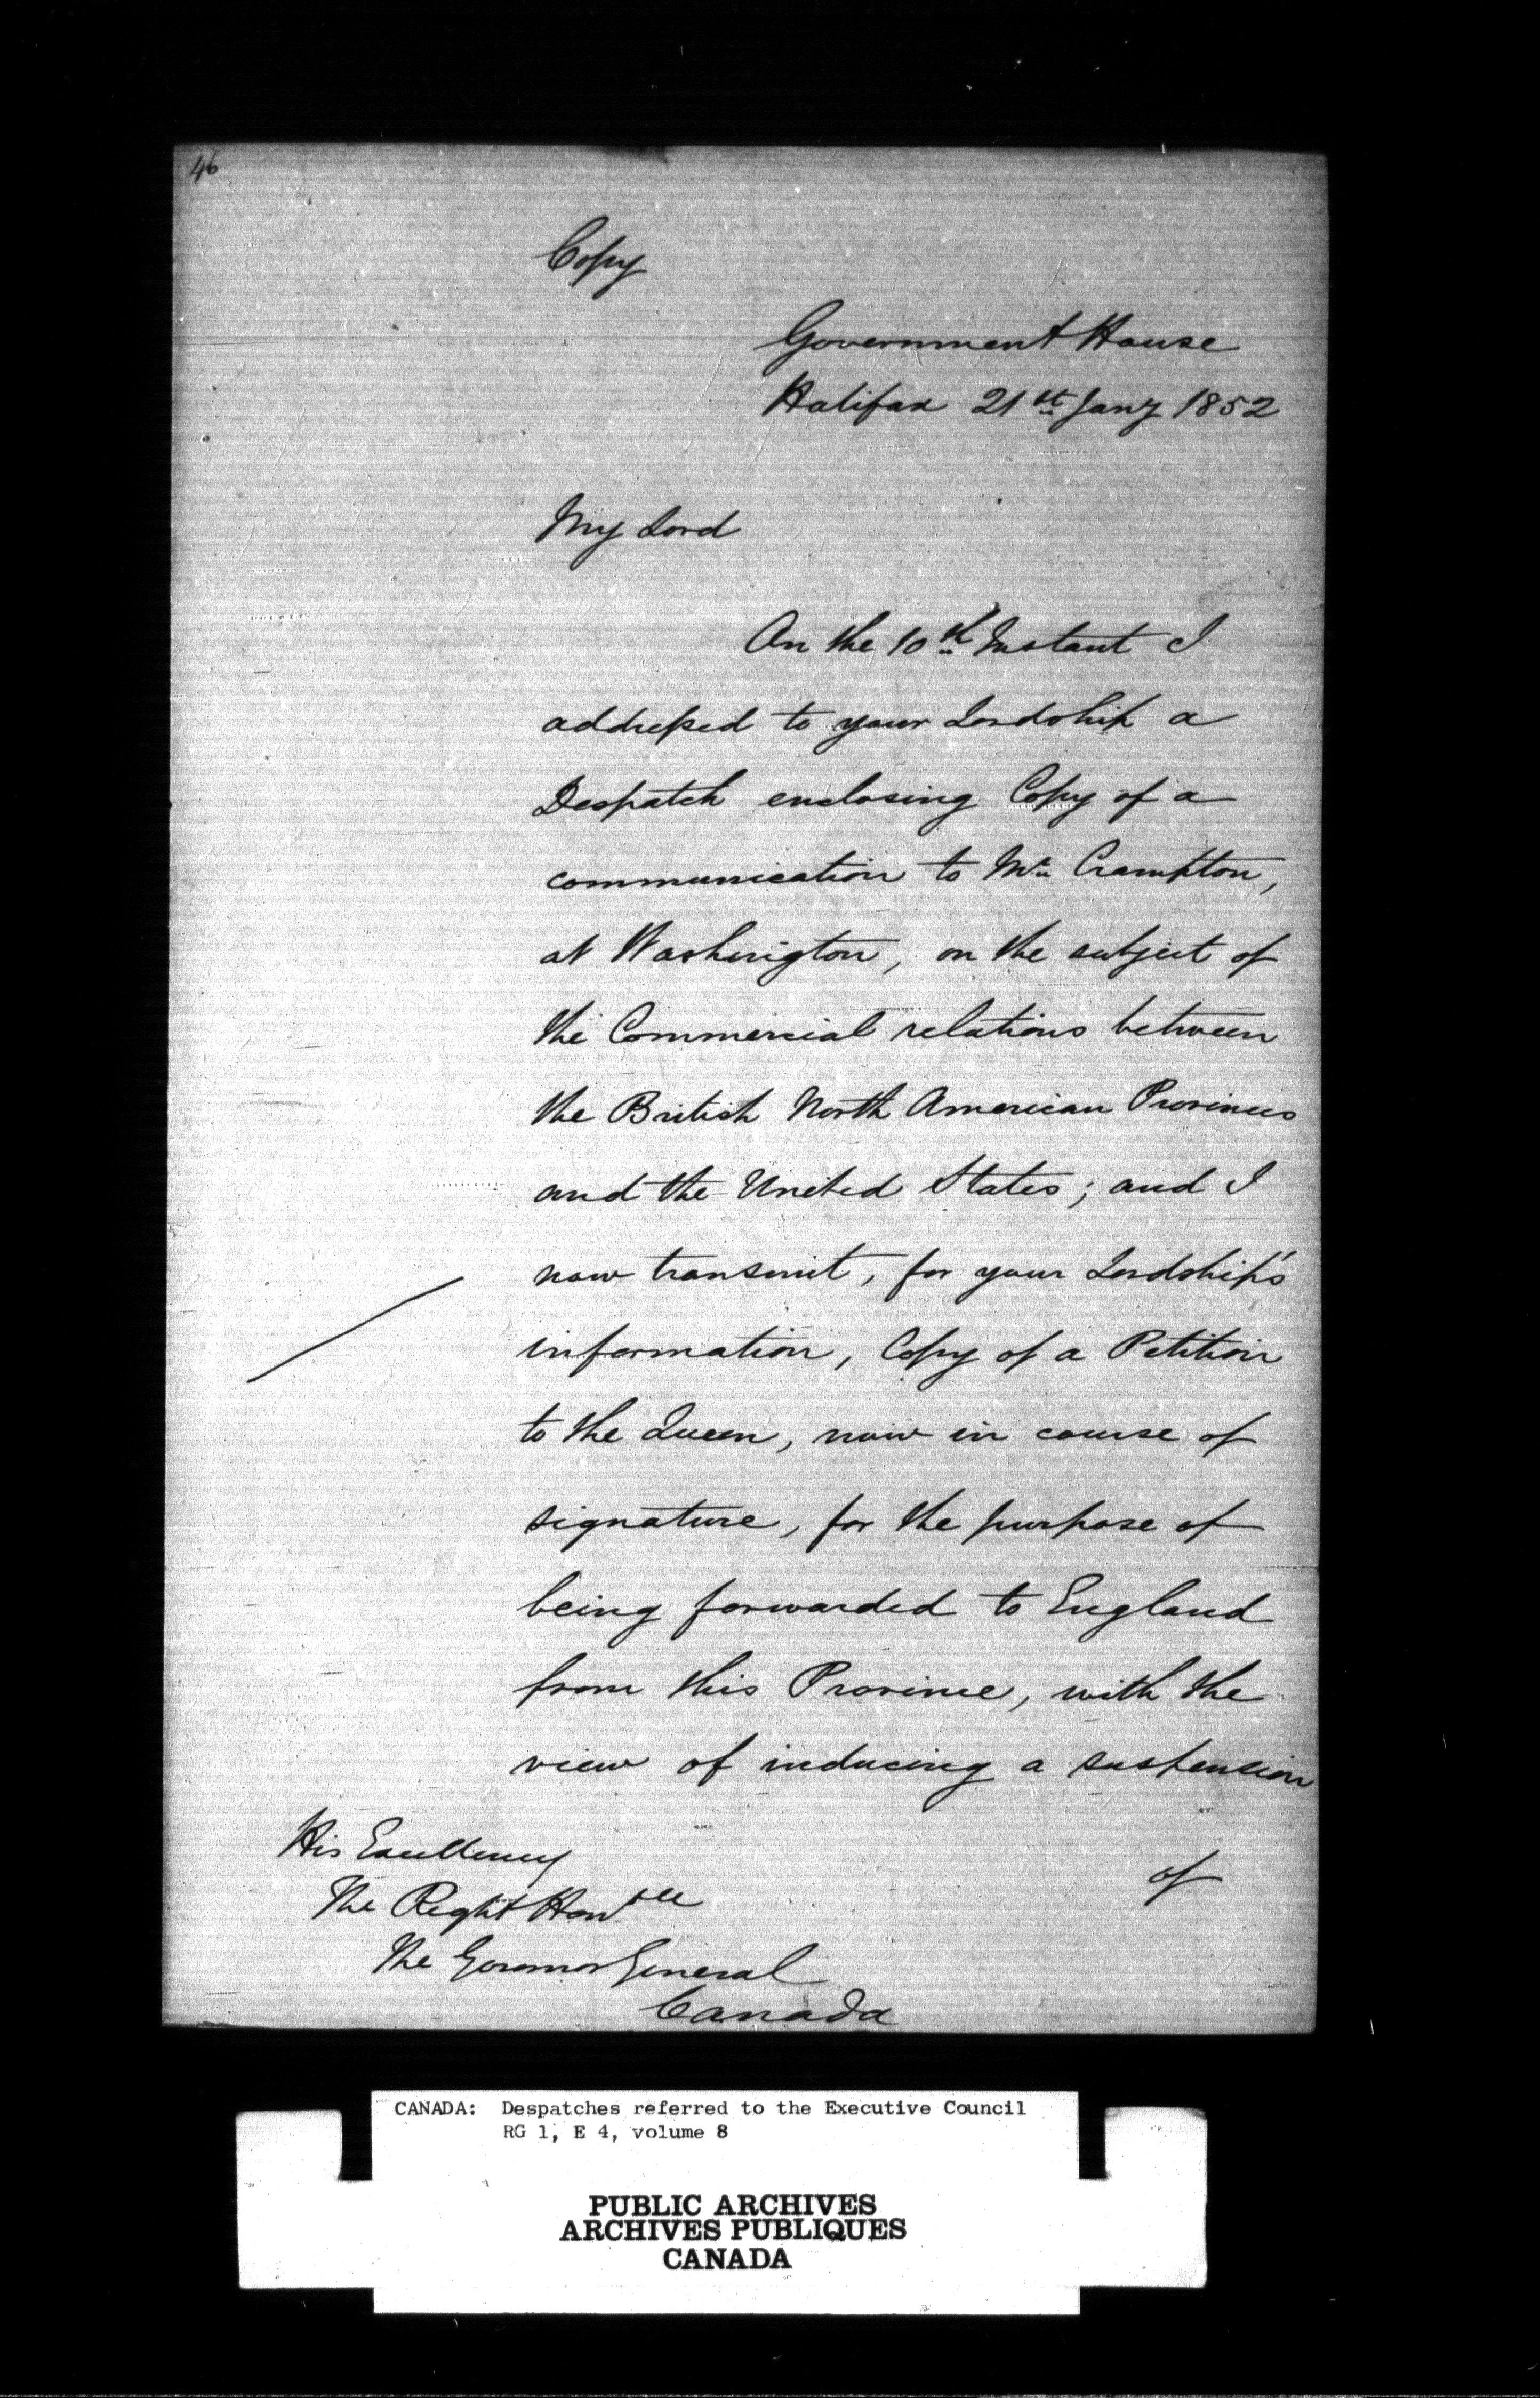 46
Copy
Government House
Halifax 21st Jany 1852
My Lord
On the 10th Instant I
addressed to your Lordship a
Despatch enclosing Copy of a
communication to Mr. Crampton,
at Washington, on the subject of
the Commercial relations between
the British North American Provinces
and the United States; and I
now transmit, for your Lordship's
information, Copy of a Petition
to the Queen, now in course of
signature, for the purpose of
being forwarded to England
from this Province, with the
view of inducing a suspension
of
His Excellency
The Right Honble
The Governor General
Canada
CANADA: Despatches referred to the Executive Council
RG 1, E 4, volume 8
PUBLIC ARCHIVES
ARCHIVES PUBLIQUES
CANADA